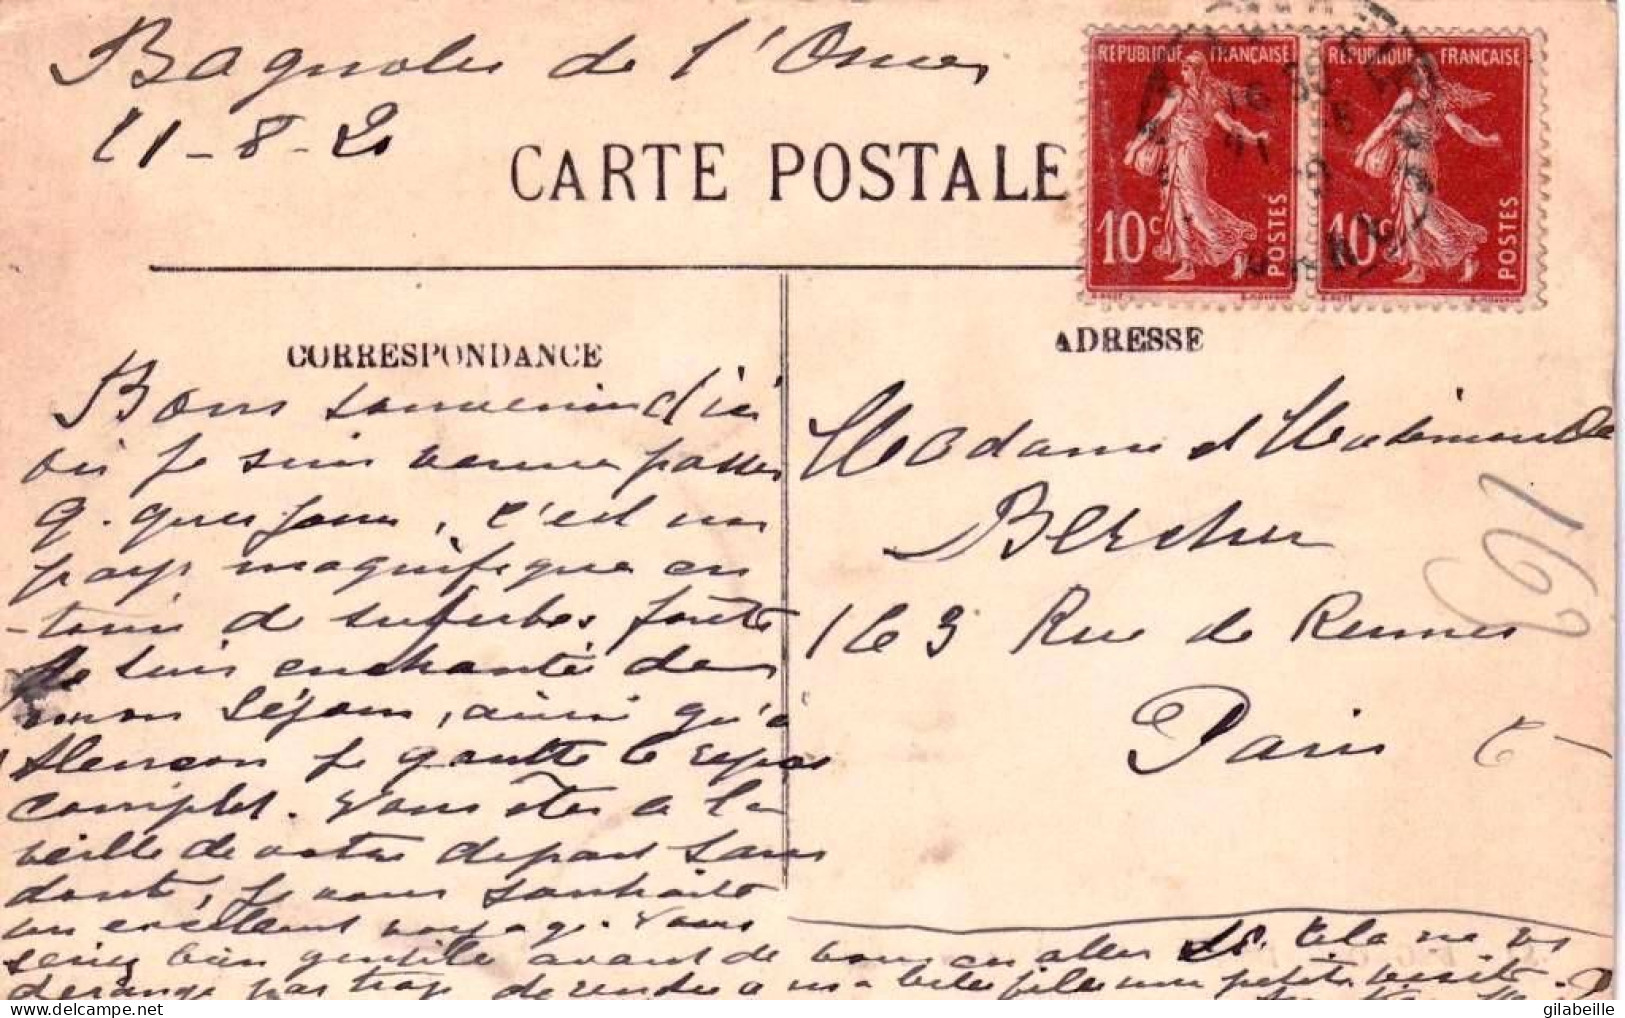 Bagnoles de l'Orne
11-8-21
CARTE POSTALE
REPUBLIQUE FRANÇAISE
10c POSTES
REPUBLIQUE FRANÇAISE
10c POSTES
CORRESPONDANCE
ADRESSE
Bons souvenirs d'ici
où je suis venue passer
q. ques jours, c'est un
pays magnifique en
-touré de superbes forêts
Je suis enchantée de
mon séjour, ainsi qu'à
Alençon je goutte le repos
complet. Vous êtes à la
veille de votre départ sans
doute, je vous souhaite
un excellent voyage. Vous
seriez bien gentille avant de vous en aller si cela ne vs
dérange pas trop de rendre à ma belle fille une petite visite
Madame et Mademoiselle
Bercher
163 Rue de Rennes
Paris 6
163
gilabeille